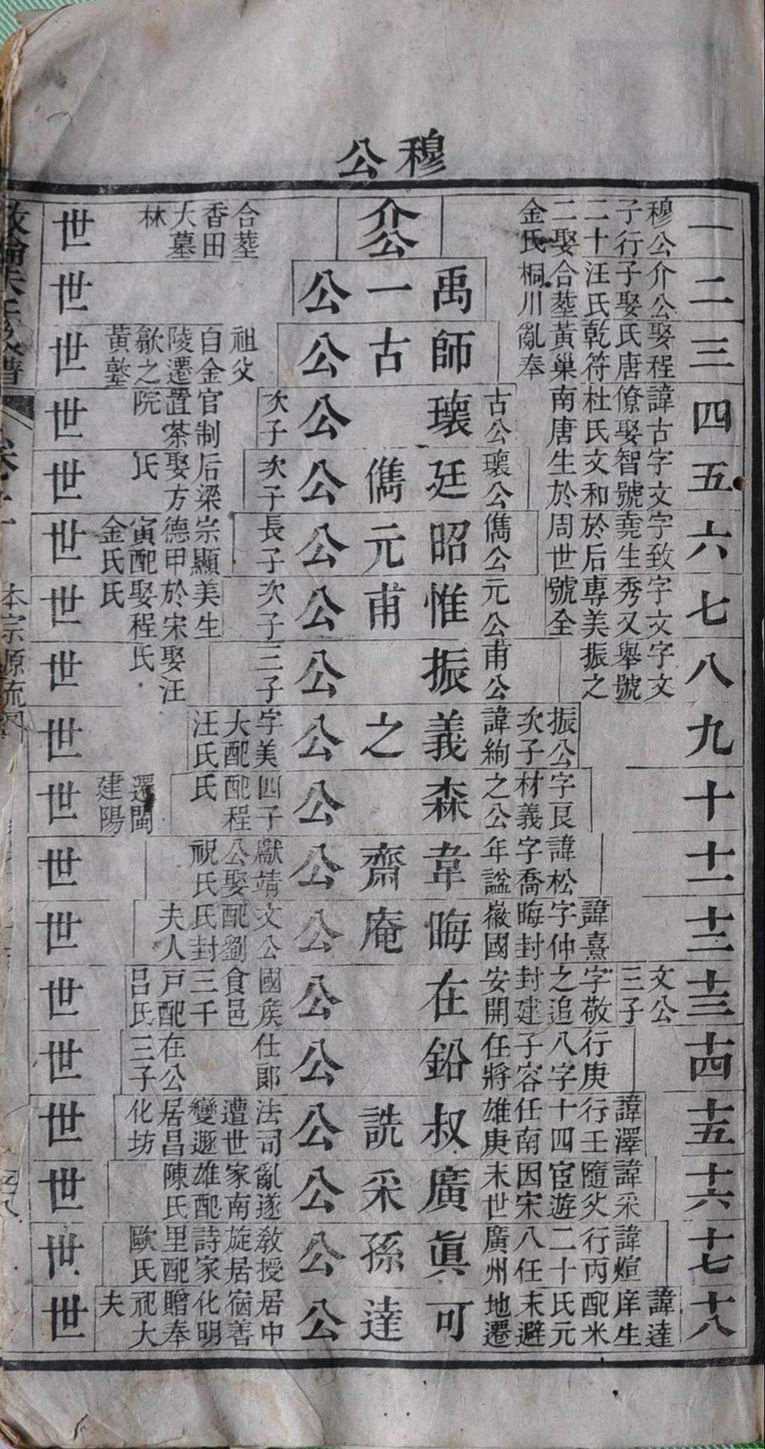 穆公
一世
穆公
子行
二十
二娶
金氏
介公
合塟
香田
大墓
林
二世
介公
子娶
汪氏
合塟
桐川
禹一公
三世
娶程
氏唐
乾符
黃巢
亂奉
師古公
祖父
白金
陵遷
歙之
黃墪
四世
諱古
僚娶
杜氏
南唐
古公
瓌公
次子
官制
置茶
院
五世
字文
智號
文和
生於
瓌公
廷儁公
次子
后梁
娶方
氏
六世
字致
堯生
於后
周世
儁公
昭元公
長子
宗顯
德甲
寅配
金氏
七世
字文
秀又
專美
號全
元公
惟甫公
次子
美生
於宋
娶程
氏
八世
字文
舉號
振之
甫公
振公
三子
娶汪
氏
九世
振公
次子
諱絢
義之公
字美
大配
汪氏
十世
字良
材義
之公
森公
四子
配程
氏
遷閩
建陽
十一世
諱松
字喬
年諡
韋齋公
獻靖
公娶
祝氏
十二世
諱熹
字仲
晦封
徽國
晦庵公
文公
配劉
氏封
夫人
十三世
文公
三子
字敬
之追
封建
安開
在公
國矦
食邑
三千
戸配
吕氏
十四世
行庚
八字
子容
任將
鉛公
仕郞
在公
三子
十五世
諱澤
行壬
十四
任南
雄庚
叔詵公
法司
遭世
變遯
居昌
化坊
十六世
諱采
隨父
宦遊
因宋
末世
廣采公
亂遂
家南
雄配
陳氏
十七世
諱煊
行丙
二十
八任
廣州
眞孫公
教授
旋居
詩家
里配
歐氏
十八世
諱達
庠生
配米
氏元
末避
地遷
可達公
居中
宿善
化明
贈奉
祀大
夫
本宗源流